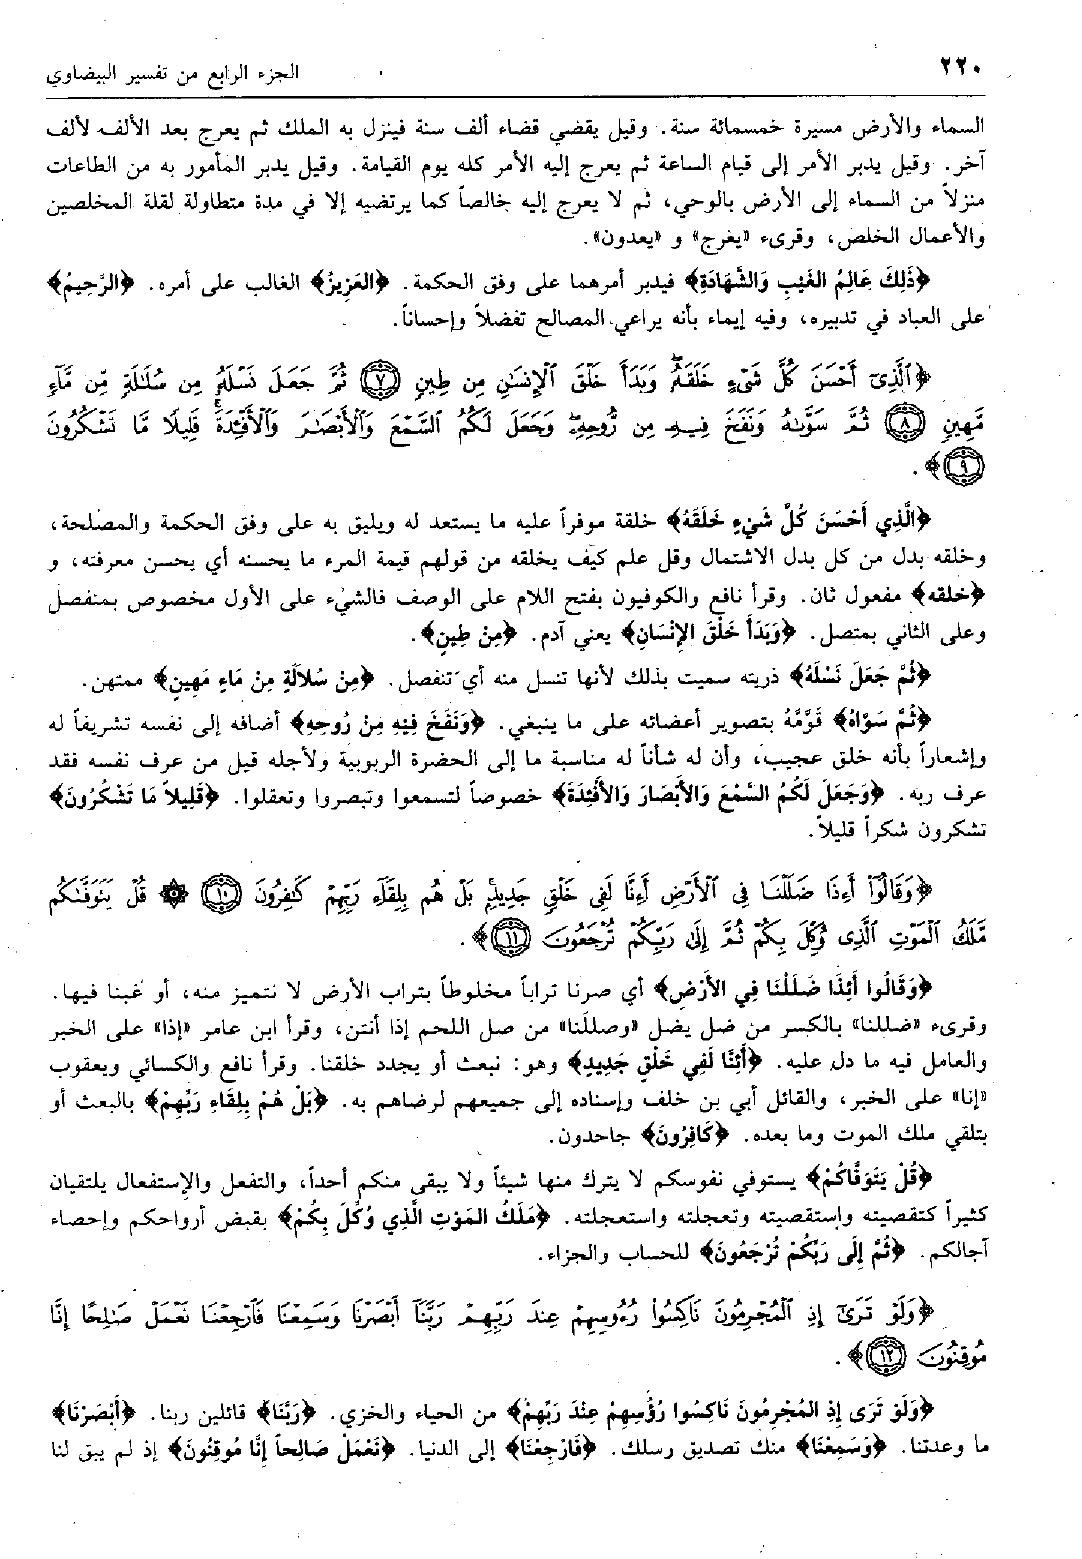 ٢٢٠
الجزء الرابع من تفسير البيضاوي
السماء والأرض مسيرة خمسمائة سنة. وقيل يقضي قضاء ألف سنة فينزل به الملك ثم يعرج بعد الألف لألف
آخر. وقيل يدبر الأمر إلى قيام الساعة ثم يعرج إليه الأمر كله يوم القيامة. وقيل يدبر المأمور به من الطاعات
منزلاً من السماء إلى الأرض بالوحي، ثم لا يعرج إليه خالصاً كما يرتضيه إلا في مدة متطاولة لقلة المخلصين
والأعمال الخلص، وقرىء «يعرج» و «يعدون».
﴿ذَلِكَ عَالِمُ الغَيْبِ وَالشَّهَادَةِ﴾ فيدبر أمرهما على وفق الحكمة. ﴿العَزِيزُ﴾ الغالب على أمره. ﴿الرَّحِيمُ﴾
على العباد في تدبيره، وفيه إيماء بأنه يراعي المصالح تفضلاً وإحساناً.
﴿ٱلَّذِىٓ أَحْسَنَ كُلَّ شَىْءٍ خَلَقَهُۥ وَبَدَأَ خَلْقَ ٱلْإِنسَٰنِ مِن طِينٍ ﴿٧﴾ ثُمَّ جَعَلَ نَسْلَهُۥ مِن سُلَٰلَةٍ مِّن مَّآءٍ
مَّهِينٍ ﴿٨﴾ ثُمَّ سَوَّىٰهُ وَنَفَخَ فِيهِ مِن رُّوحِهِۦ وَجَعَلَ لَكُمُ ٱلسَّمْعَ وَٱلْأَبْصَٰرَ وَٱلْأَفْـِٔدَةَ قَلِيلًا مَّا تَشْكُرُونَ
﴿٩﴾﴾.
﴿الَّذِي أَحْسَنَ كُلَّ شَيْءٍ خَلَقَهُ﴾ خلقة موفراً عليه ما يستعد له ويليق به على وفق الحكمة والمصلحة،
وخلقه بدل من كل بدل الاشتمال وقل علم كيف يخلقه من قولهم قيمة المرء ما يحسنه أي يحسن معرفته، و
﴿خلقه﴾ مفعول ثان. وقرأ نافع والكوفيون بفتح اللام على الوصف فالشيء على الأول مخصوص بمنفصل
وعلى الثاني بمتصل. ﴿وَبَدَأَ خَلْقَ الإِنْسَانِ﴾ يعني آدم. ﴿مِنْ طِينٍ﴾.
﴿ثُمَّ جَعَلَ نَسْلَهُ﴾ ذريته سميت بذلك لأنها تنسل منه أي تنفصل. ﴿مِنْ سُلاَلَةٍ مِنْ مَاءٍ مَهِينٍ﴾ ممتهن.
﴿ثُمَّ سَوَّاهُ﴾ قَوَّمَهُ بتصوير أعضائه على ما ينبغي. ﴿وَنَفَخَ فِيْهِ مِنْ رُوحِهِ﴾ أضافه إلى نفسه تشريفاً له
وإشعاراً بأنه خلق عجيب، وأن له شأناً له مناسبة ما إلى الحضرة الربوبية ولأجله قيل من عرف نفسه فقد
عرف ربه. ﴿وَجَعَلَ لَكُمُ السَّمْعَ وَالأَبْصَارَ وَالأَفْئِدَةَ﴾ خصوصاً لتسمعوا وتبصروا وتعقلوا. ﴿قَلِيلاً مَا تَشْكُرُونَ﴾
تشكرون شكراً قليلاً.
﴿وَقَالُوٓا۟ أَءِذَا ضَلَلْنَا فِى ٱلْأَرْضِ أَءِنَّا لَفِى خَلْقٍ جَدِيدٍۭ بَلْ هُم بِلِقَآءِ رَبِّهِمْ كَٰفِرُونَ ﴿١٠﴾ ۞ قُلْ يَتَوَفَّىٰكُم
مَّلَكُ ٱلْمَوْتِ ٱلَّذِى وُكِّلَ بِكُمْ ثُمَّ إِلَىٰ رَبِّكُمْ تُرْجَعُونَ ﴿١١﴾﴾.
﴿وَقَالُوا أَئِذَا ضَلَلْنَا فِي الأَرْضِ﴾ أي صرنا تراباً مخلوطاً بتراب الأرض لا نتميز منه، أو غبنا فيها.
وقرىء «ضللنا» بالكسر من ضل يضل «وصللنا» من صل اللحم إذا أنتن، وقرأ ابن عامر «إذا» على الخبر
والعامل فيه ما دل عليه. ﴿أَئِنَّا لَفِي خَلْقٍ جَدِيدٍ﴾ وهو: نبعث أو يجدد خلقنا. وقرأ نافع والكسائي ويعقوب
«إنا» على الخبر، والقائل أبي بن خلف وإسناده إلى جميعهم لرضاهم به. ﴿بَلْ هُمْ بِلِقَاءِ رَبِّهِمْ﴾ بالبعث أو
بتلقي ملك الموت وما بعده. ﴿كَافِرُونَ﴾ جاحدون.
﴿قُلْ يَتَوَفَّاكُمْ﴾ يستوفي نفوسكم لا يترك منها شيئاً ولا يبقى منكم أحداً، والتفعل والإستفعال يلتقيان
كثيراً كتقصيته وإستقصيته وتعجلته واستعجلته. ﴿مَلَكُ المَوْتِ الَّذِي وُكِّلَ بِكُمْ﴾ بقبض أرواحكم وإحصاء
آجالكم. ﴿ثُمَّ إِلَى رَبِّكُمْ تُرْجَعُونَ﴾ للحساب والجزاء.
﴿وَلَوْ تَرَىٰٓ إِذِ ٱلْمُجْرِمُونَ نَاكِسُوا۟ رُءُوسِهِمْ عِندَ رَبِّهِمْ رَبَّنَآ أَبْصَرْنَا وَسَمِعْنَا فَٱرْجِعْنَا نَعْمَلْ صَٰلِحًا إِنَّا
مُوقِنُونَ ﴿١٢﴾﴾.
﴿وَلَوْ تَرَى إِذِ المُجْرِمُونَ نَاكِسُوا رُؤُسِهِمْ عِنْدَ رَبِّهِمْ﴾ من الحياء والخزي. ﴿رَبَّنَا﴾ قائلين ربنا. ﴿أَبْصَرْنَا﴾
ما وعدتنا. ﴿وَسَمِعْنَا﴾ منك تصديق رسلك. ﴿فَارْجِعْنَا﴾ إلى الدنيا. ﴿نَعْمَلْ صَالِحاً إِنَّا مُوقِنُونَ﴾ إذ لم يبق لنا